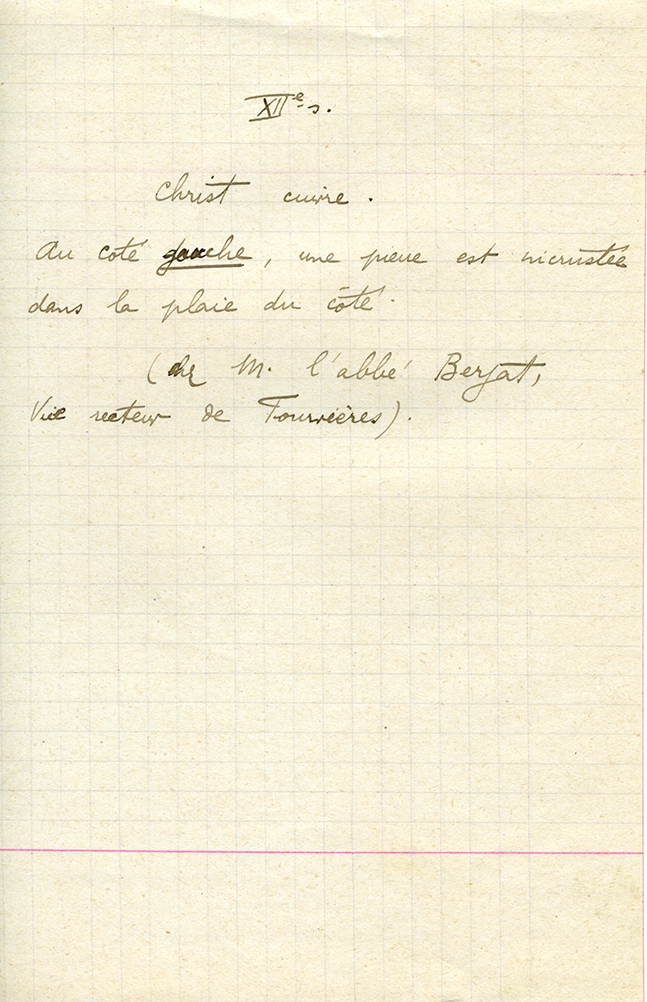 XIIe s.
Christ cuivre.
Au coté gauche, une pierre est incrustée
dans la plaie du côté.
(chez M. l'abbé Berjat,
Vice recteur de Fourvières).